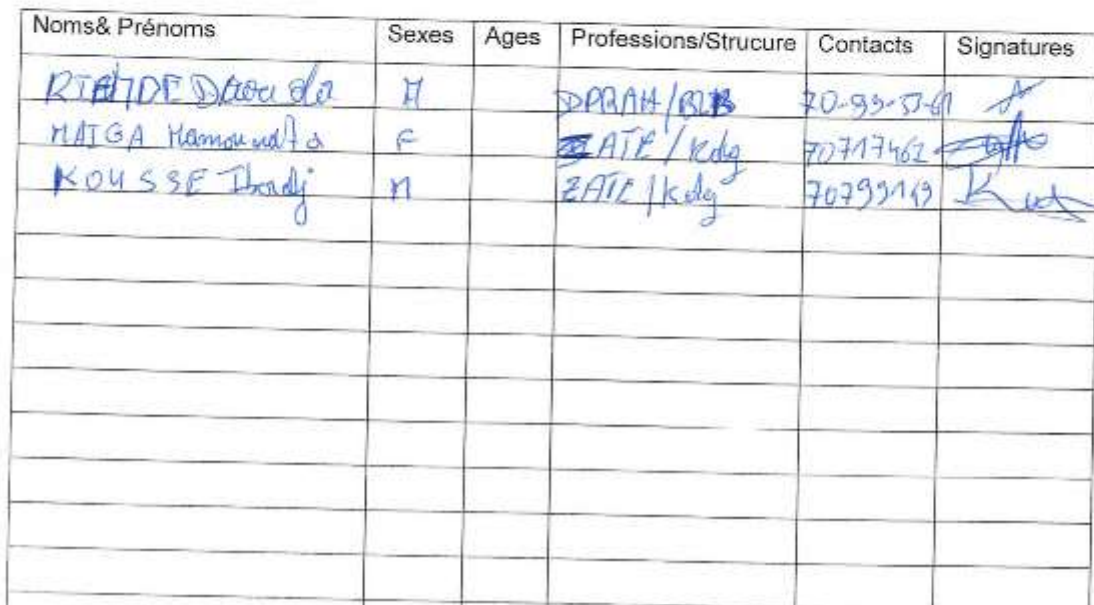 Noms& Prénoms Sexes Ages Professions/Strucure Contacts Signatures
Daouda M DPRAH/ 70-99-53-61
MAIGA Hamounata F ZATE/Kdg 70717462
KOUSSE M ZATE/Kdg 70799149